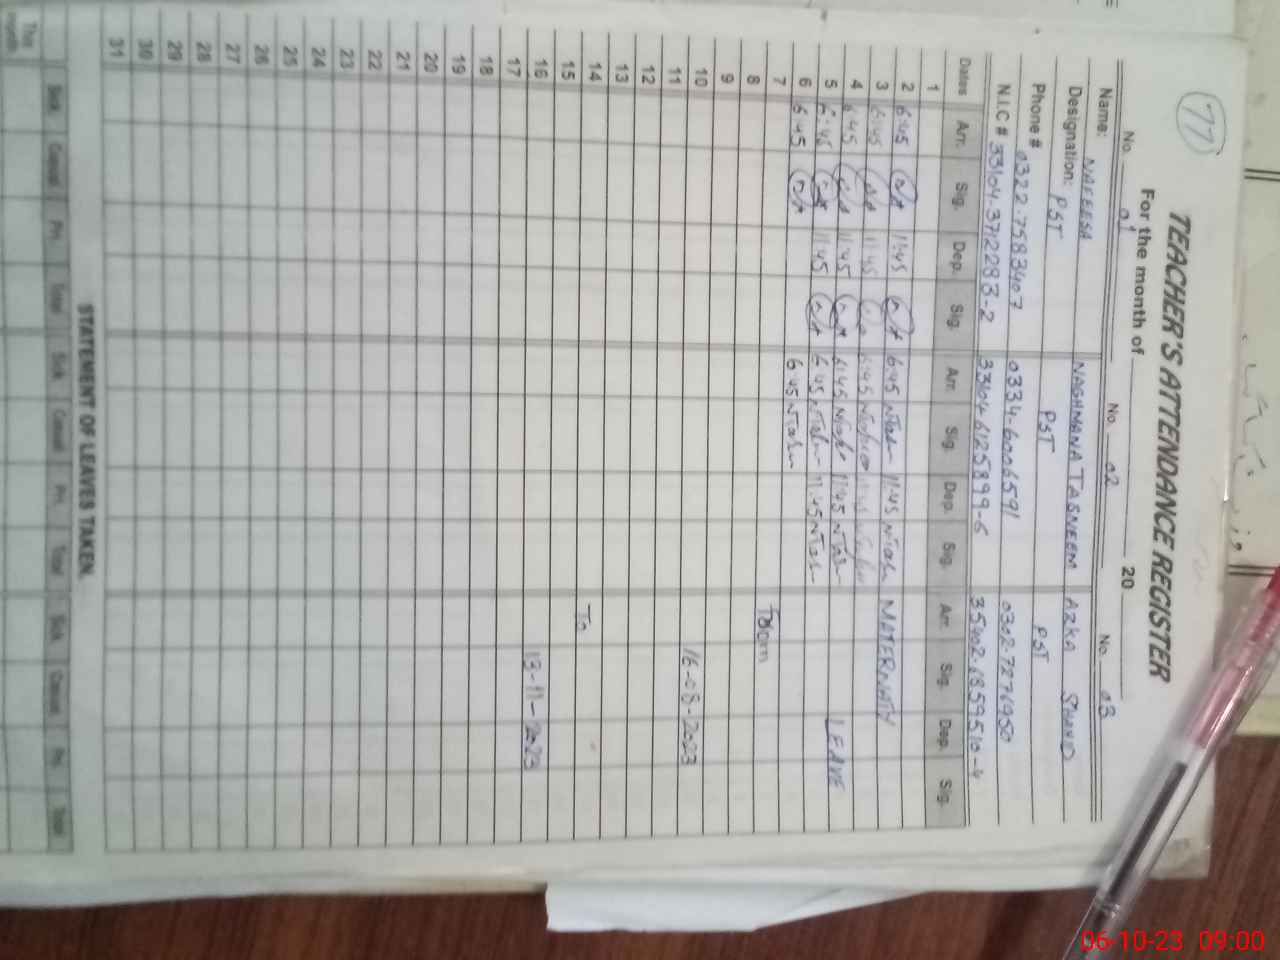 77
TEACHER'S ATTENDANCE REGISTER
For the month of 20
No. 01 No. 02 No. 03
Name: NAFEESA NAGHMANA TABNEEM AZKA SHAHID
Designation: PST PST PST
Phone # 0322-7583407 0334-6006591 0302-7276950
N.I.C # 33104-3712283-2 33104-6125899-6 35402-6859510-4
Dates Arr. Sig. Dep. Sig. Arr. Sig. Dep. Sig. Arr. Sig. Dep. Sig.
1
2 6:45 11:45 6:45 11:45 MATERNATY
3 6:45 11:45 6:45 11:45
4 6:45 11:45 6:45 11:45
5 6:45 11:45 6:45 11:45 LEAVE
6 6:45 6:45
7
8 From
9
10 16-08-2023
11
12
13
14
15 To
16 13-11-2023
17
18
19
20
21
22
23
24
25
26
27
28
29
30
31
STATEMENT OF LEAVES TAKEN.
This month Sick Casual Pri. Total Sick Casual Pri. Total Sick Casual Pri. Total
06-10-23 09:00